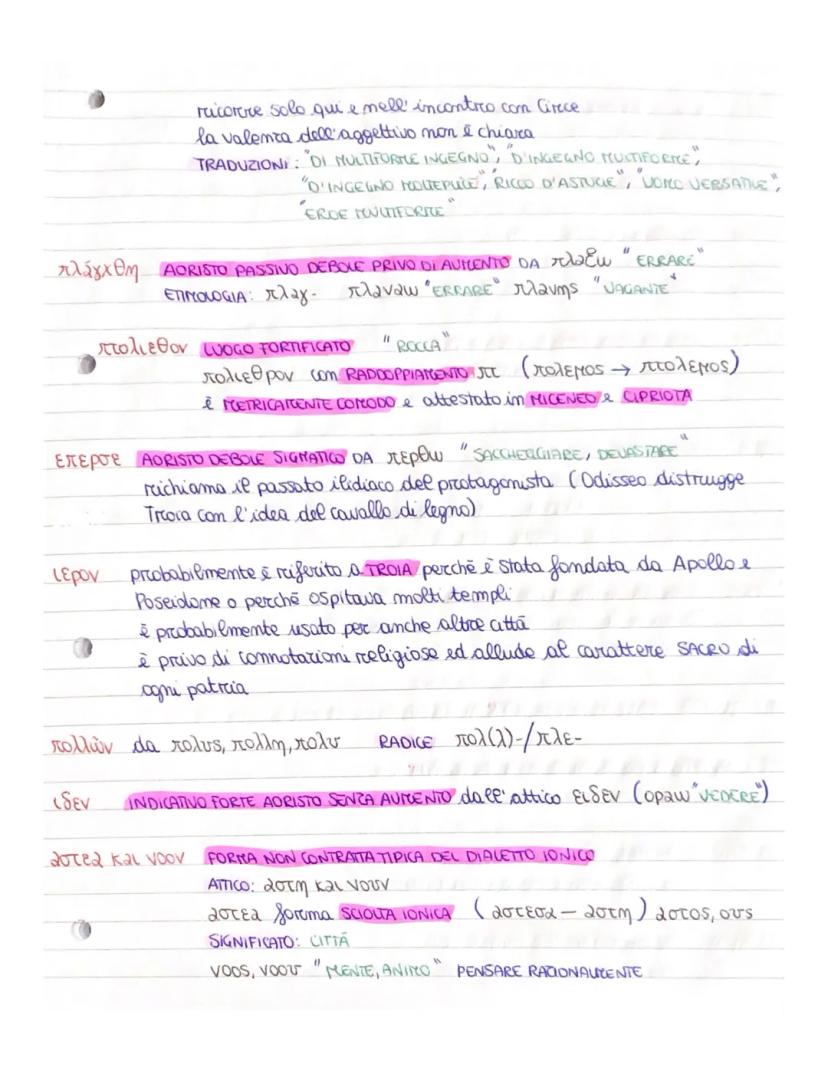 ricorre solo qui e nell'incontro con Circe
la valenza dell'aggettivo non è chiara
TRADUZIONI: "DI MULTIFORME INGEGNO", "D'INGEGNO MULTIFORME",
"D'INGEGNO MOLTEPLICE", RICCO D'ASTUZIE", "UOMO VERSATILE",
"EROE MULTIFORME"
πλάγχθη AORISTO PASSIVO DEBOLE PRIVO DI AUMENTO DA πλαζω "ERRARE"
ETIMOLOGIA: πλαγ- πλαναω "ERRARE" πλανης "VAGANTE"
πτολιεθον LUOGO FORTIFICATO "ROCCA"
πολιεθρον con RADDOPPIAMENTO ππ (πολεμος → πτολεμος)
è METRICAMENTE COMODO e attestato in MICENEO e CIPRIOTA
επερσε AORISTO DEBOLE SIGMATICO DA περθω "SACCHEGGIARE, DEVASTARE"
richiama il passato iliadico del protagonista (Odisseo distrugge
Troia con l'idea del cavallo di legno)
ιερον probabilmente è riferito a TROIA perché è stata fondata da Apollo e
Poseidone o perché ospitava molti templi
è probabilmente usato per anche altre città
è privo di connotazioni religiose ed allude al carattere SACRO di
ogni patria
πολλών da πολυς, πολλη, πολυ RADICE πολ(λ)-/πλε-
ιδεν INDICATIVO FORTE AORISTO SENZA AUMENTO dall'attico ειδεν (οραω "VEDERE")
αστεα και νοον FORMA NON CONTRATTA TIPICA DEL DIALETTO IONICO
ATTICO: αστη και νουν
αστεα forma SCIOLTA IONICA (αστεσα - αστη) αστος, ους
SIGNIFICATO: CITTÀ
νοος, νοου "MENTE, ANIMO" PENSARE RAZIONALMENTE